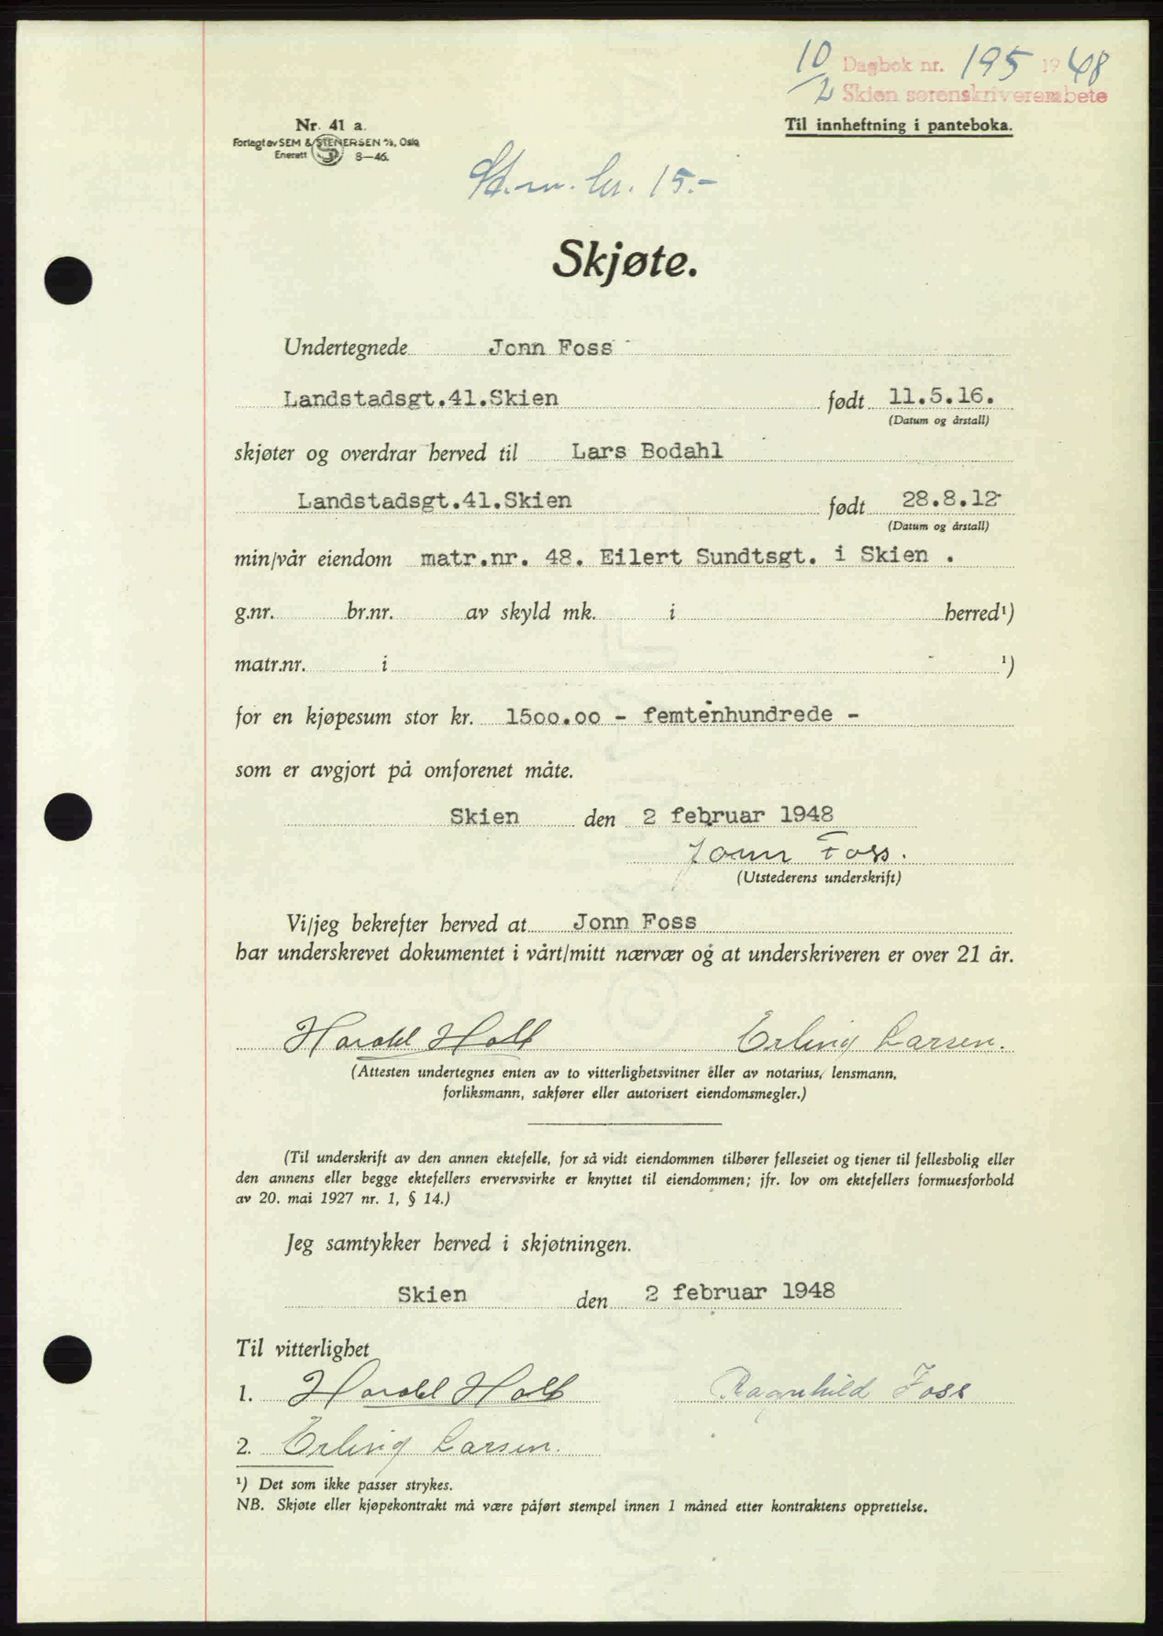 10/2 Dagbok nr. 195 1948
Skien sorenskriverembete
Til innheftning i panteboka.
Nr. 41 a.
Forlagt av SEM & STENERSEN A/S, Oslo
Enerett 8—46.
St.m. kr. 15.-
Skjøte.
Undertegnede Jonn Foss
Landstadsgt.41.Skien født 11.5.16.
(Datum og årstall)
skjøter og overdrar herved til Lars Bodahl
Landstadsgt.41.Skien født 28.8.12
(Datum og årstall)
min/vår eiendom matr.nr. 48. Eilert Sundtsgt. i Skien .
g.nr. br.nr. av skyld mk. i herred¹)
matr.nr. i ¹)
for en kjøpesum stor kr. 1500.00 - femtenhundrede -
som er avgjort på omforenet måte.
Skien den 2 februar 1948
Jonn Foss.
(Utstederens underskrift)
Vi/jeg bekrefter herved at Jonn Foss
har underskrevet dokumentet i vårt/mitt nærvær og at underskriveren er over 21 år.
Harald Holt Erling Larsen.
(Attesten undertegnes enten av to vitterlighetsvitner eller av notarius, lensmann,
forliksmann, sakfører eller autorisert eiendomsmegler.)
(Til underskrift av den annen ektefelle, for så vidt eiendommen tilhører felleseiet og tjener til fellesbolig eller
den annens eller begge ektefellers ervervsvirke er knyttet til eiendommen; jfr. lov om ektefellers formuesforhold
av 20. mai 1927 nr. 1, § 14.)
Jeg samtykker herved i skjøtningen.
Skien den 2 februar 1948
Til vitterlighet
1. Harald Holt Ragnhild Foss
2. Erling Larsen.
¹) Det som ikke passer strykes.
NB. Skjøte eller kjøpekontrakt må være påført stempel innen 1 måned etter kontraktens opprettelse.